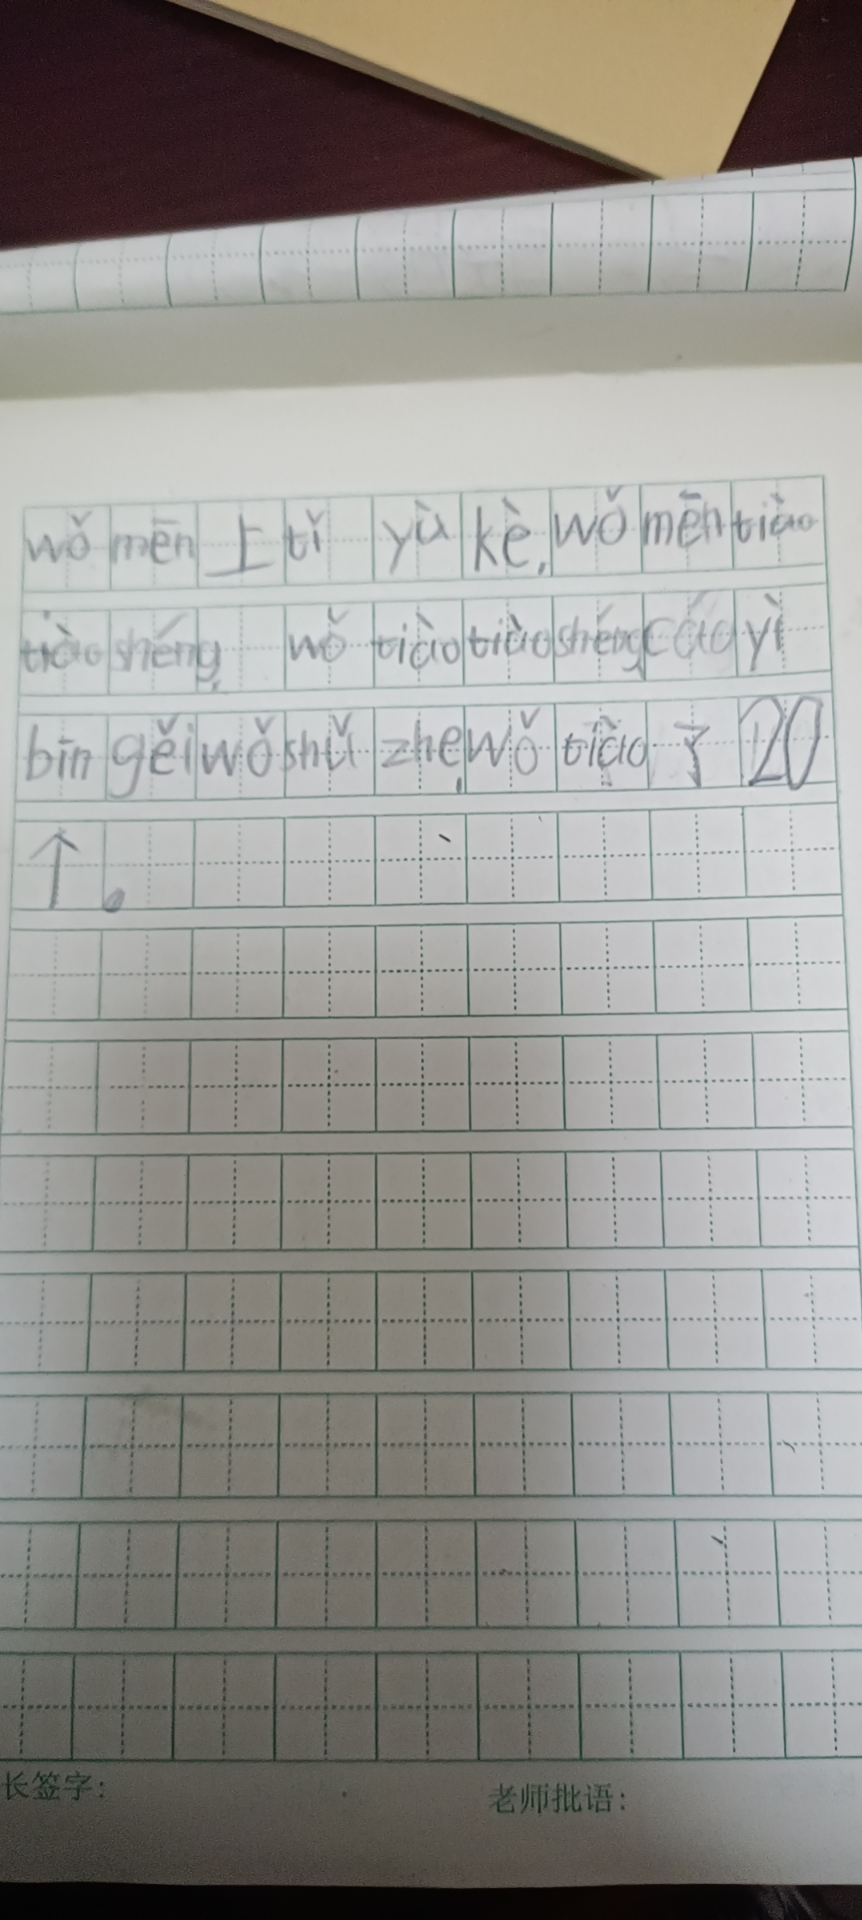 wǒ mēn 上 tǐ yù kè, wǒ mēn tiào
tiào shéng wǒ tiào tiào shéng cáo yì
bīn gěi wǒ shǔ zhe, wǒ tiào 了 20
个。
长签字: 老师批语: